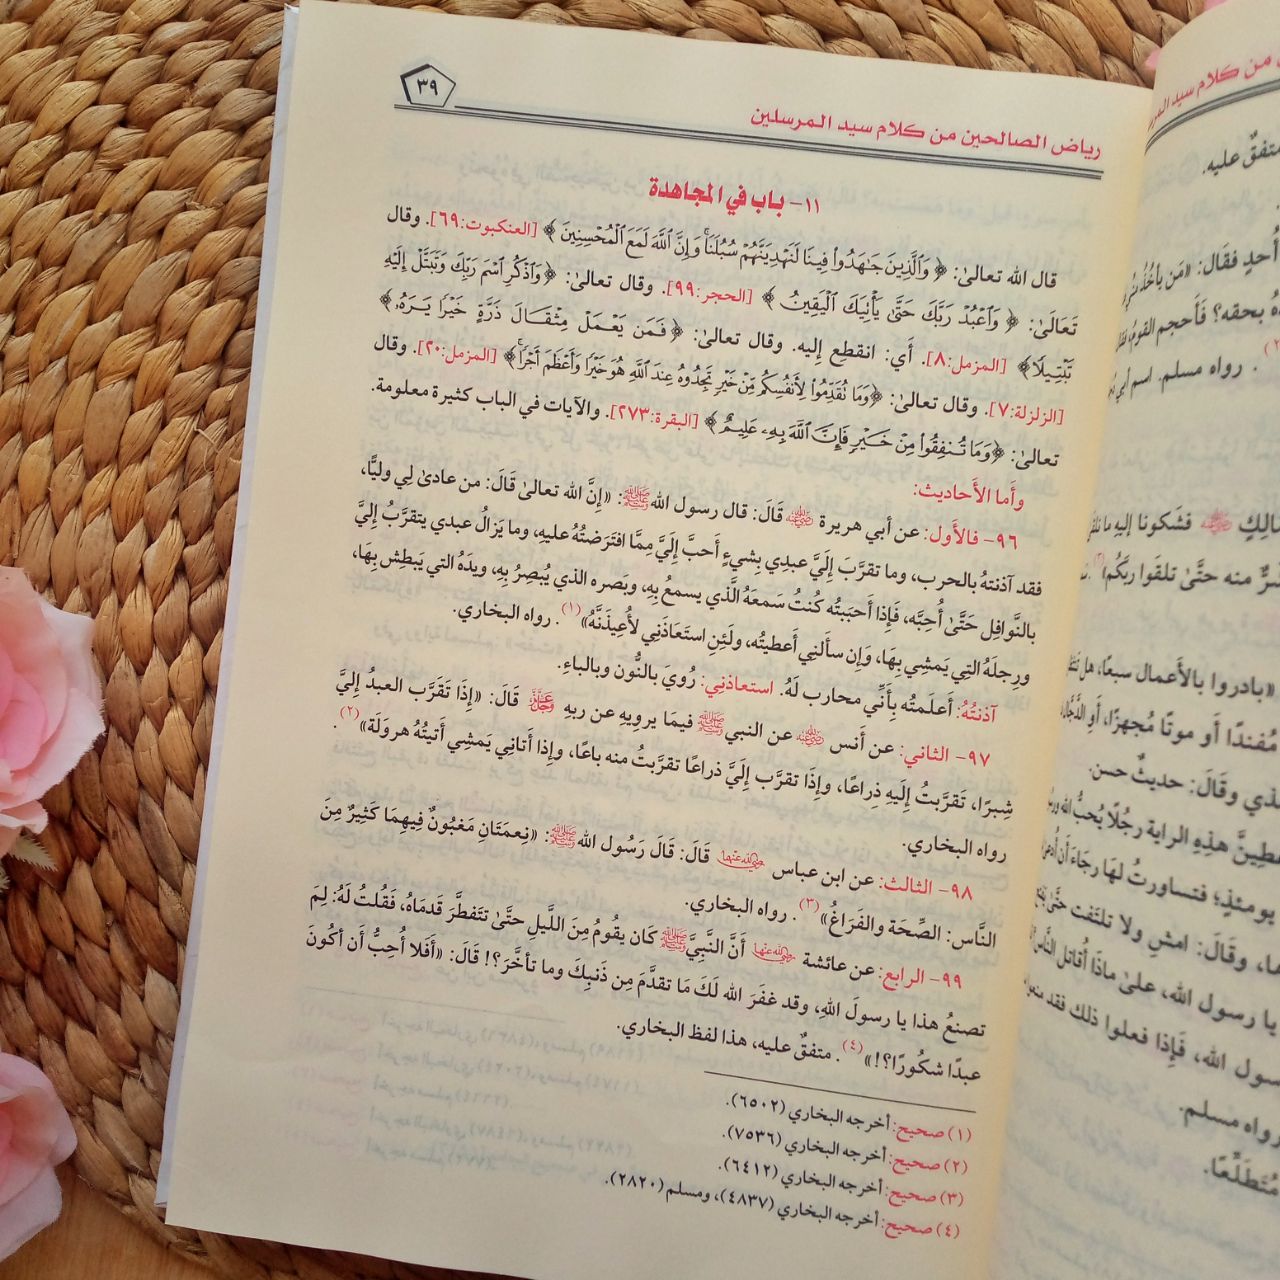 ٣٩
رياض الصالحين من كلام سيد المرسلين
١١- باب في المجاهدة
قال الله تعالىٰ: ﴿ وَٱلَّذِينَ جَٰهَدُوا۟ فِينَا لَنَهْدِيَنَّهُمْ سُبُلَنَا ۚ وَإِنَّ ٱللَّهَ لَمَعَ ٱلْمُحْسِنِينَ ﴾ [العنكبوت:٦٩]. وقال
تَعَالَىٰ: ﴿ وَٱعْبُدْ رَبَّكَ حَتَّىٰ يَأْتِيَكَ ٱلْيَقِينُ ﴾ [الحجر:٩٩]. وقال تعالىٰ: ﴿وَٱذْكُرِ ٱسْمَ رَبِّكَ وَتَبَتَّلْ إِلَيْهِ
تَبْتِيلًا﴾ [المزمل:٨]. أَي: انقطِع إِليه. وقال تعالىٰ: ﴿ فَمَن يَعْمَلْ مِثْقَالَ ذَرَّةٍ خَيْرًا يَرَهُۥ ﴾
[الزلزلة:٧]. وقال تعالىٰ: ﴿وَمَا تُقَدِّمُوا۟ لِأَنفُسِكُم مِّنْ خَيْرٍ تَجِدُوهُ عِندَ ٱللَّهِ هُوَ خَيْرًا وَأَعْظَمَ أَجْرًا ۚ﴾ [المزمل:٢٠]. وقال
تعالىٰ: ﴿وَمَا تُنفِقُوا۟ مِنْ خَيْرٍ فَإِنَّ ٱللَّهَ بِهِۦ عَلِيمٌ ﴾ [البقرة:٢٧٣]. والآيات في الباب كثيرة معلومة.
وأَما الأَحاديث:
٩٦- فالأَول: عن أبي هريرة ﵁ قَالَ: قال رسول الله ﷺ: «إِنَّ الله تعالىٰ قَالَ: من عادىٰ لي وليًّا،
فقد آذنتهُ بالحرب، وما تقرَّبَ إِلَيَّ عبدِي بِشيءٍ أَحبَّ إِلَيَّ مِمَّا افتَرَضتُهُ عليهِ، وما يَزالُ عبدي يتقرَّبُ إِليَّ
بالنَّوافِلِ حَتَّىٰ أُحِبَّه، فَإِذا أَحبَبتُه كُنتُ سَمعَهُ الَّذي يسمعُ بِهِ، وبَصره الذي يُبصِرُ بِهِ، ويدَهُ التي يَبطِش بِهَا،
ورِجلَهُ التِي يَمشِي بِهَا، وَإِن سأَلنِي أَعطيتُه، ولَئِنِ استَعَاذَنِي لأُعِيذَنَّهُ»(١). رواه البخاري.
آذنتُهُ: أَعلَمتُه بِأَنِّي محارب لَهُ. استعاذني: رُوِيَ بالنُّون وبالباءِ.
٩٧- الثاني: عن أَنس ﵁ عن النبي ﷺ فيمَا يرويهِ عن ربهِ ﷿ قَالَ: «إِذَا تَقَرَّب العبدُ إِليَّ
شِبرًا، تَقَرَّبتُ إِلَيهِ ذِراعًا، وإِذَا تقرَّب إِلَيَّ ذراعًا تقرَّبتُ منه باعًا، وإِذا أَتانِي يَمشِي أَتيتُهُ هروَلَة»(٢).
رواه البخاري.
٩٨- الثالث: عن ابن عباس ﵄ قَالَ: قَالَ رَسُول الله ﷺ: «نِعمَتَانِ مَغبُونٌ فِيهِمَا كَثِيرٌ مِنَ
النَّاس: الصِّحَة والفَرَاغُ»(٣). رواه البخاري.
٩٩- الرابع: عن عائشة ﵂ أَنَّ النَّبِيَّ ﷺ كَان يقُومُ مِنَ اللَّيلِ حتَّىٰ تتَفطَّرَ قَدمَاهُ، فَقُلتُ لَهُ: لِمَ
تصنعُ هذا يا رسولَ اللهِ، وقد غفَرَ الله لَكَ مَا تقدَّمَ مِن ذَنبِكَ وما تأخَّرَ؟! قَالَ: «أَفَلا أُحِبُّ أَن أكُونَ
عبدًا شكُورًا؟!»(٤). متفقٌ عليه، هذا لفظ البخاري.
(١) صحيح: أخرجه البخاري (٦٥٠٢).
(٢) صحيح: أخرجه البخاري (٧٥٣٦).
(٣) صحيح: أخرجه البخاري (٦٤١٢).
(٤) صحيح: أخرجه البخاري (٤٨٣٧)، ومسلم (٢٨٢٠).